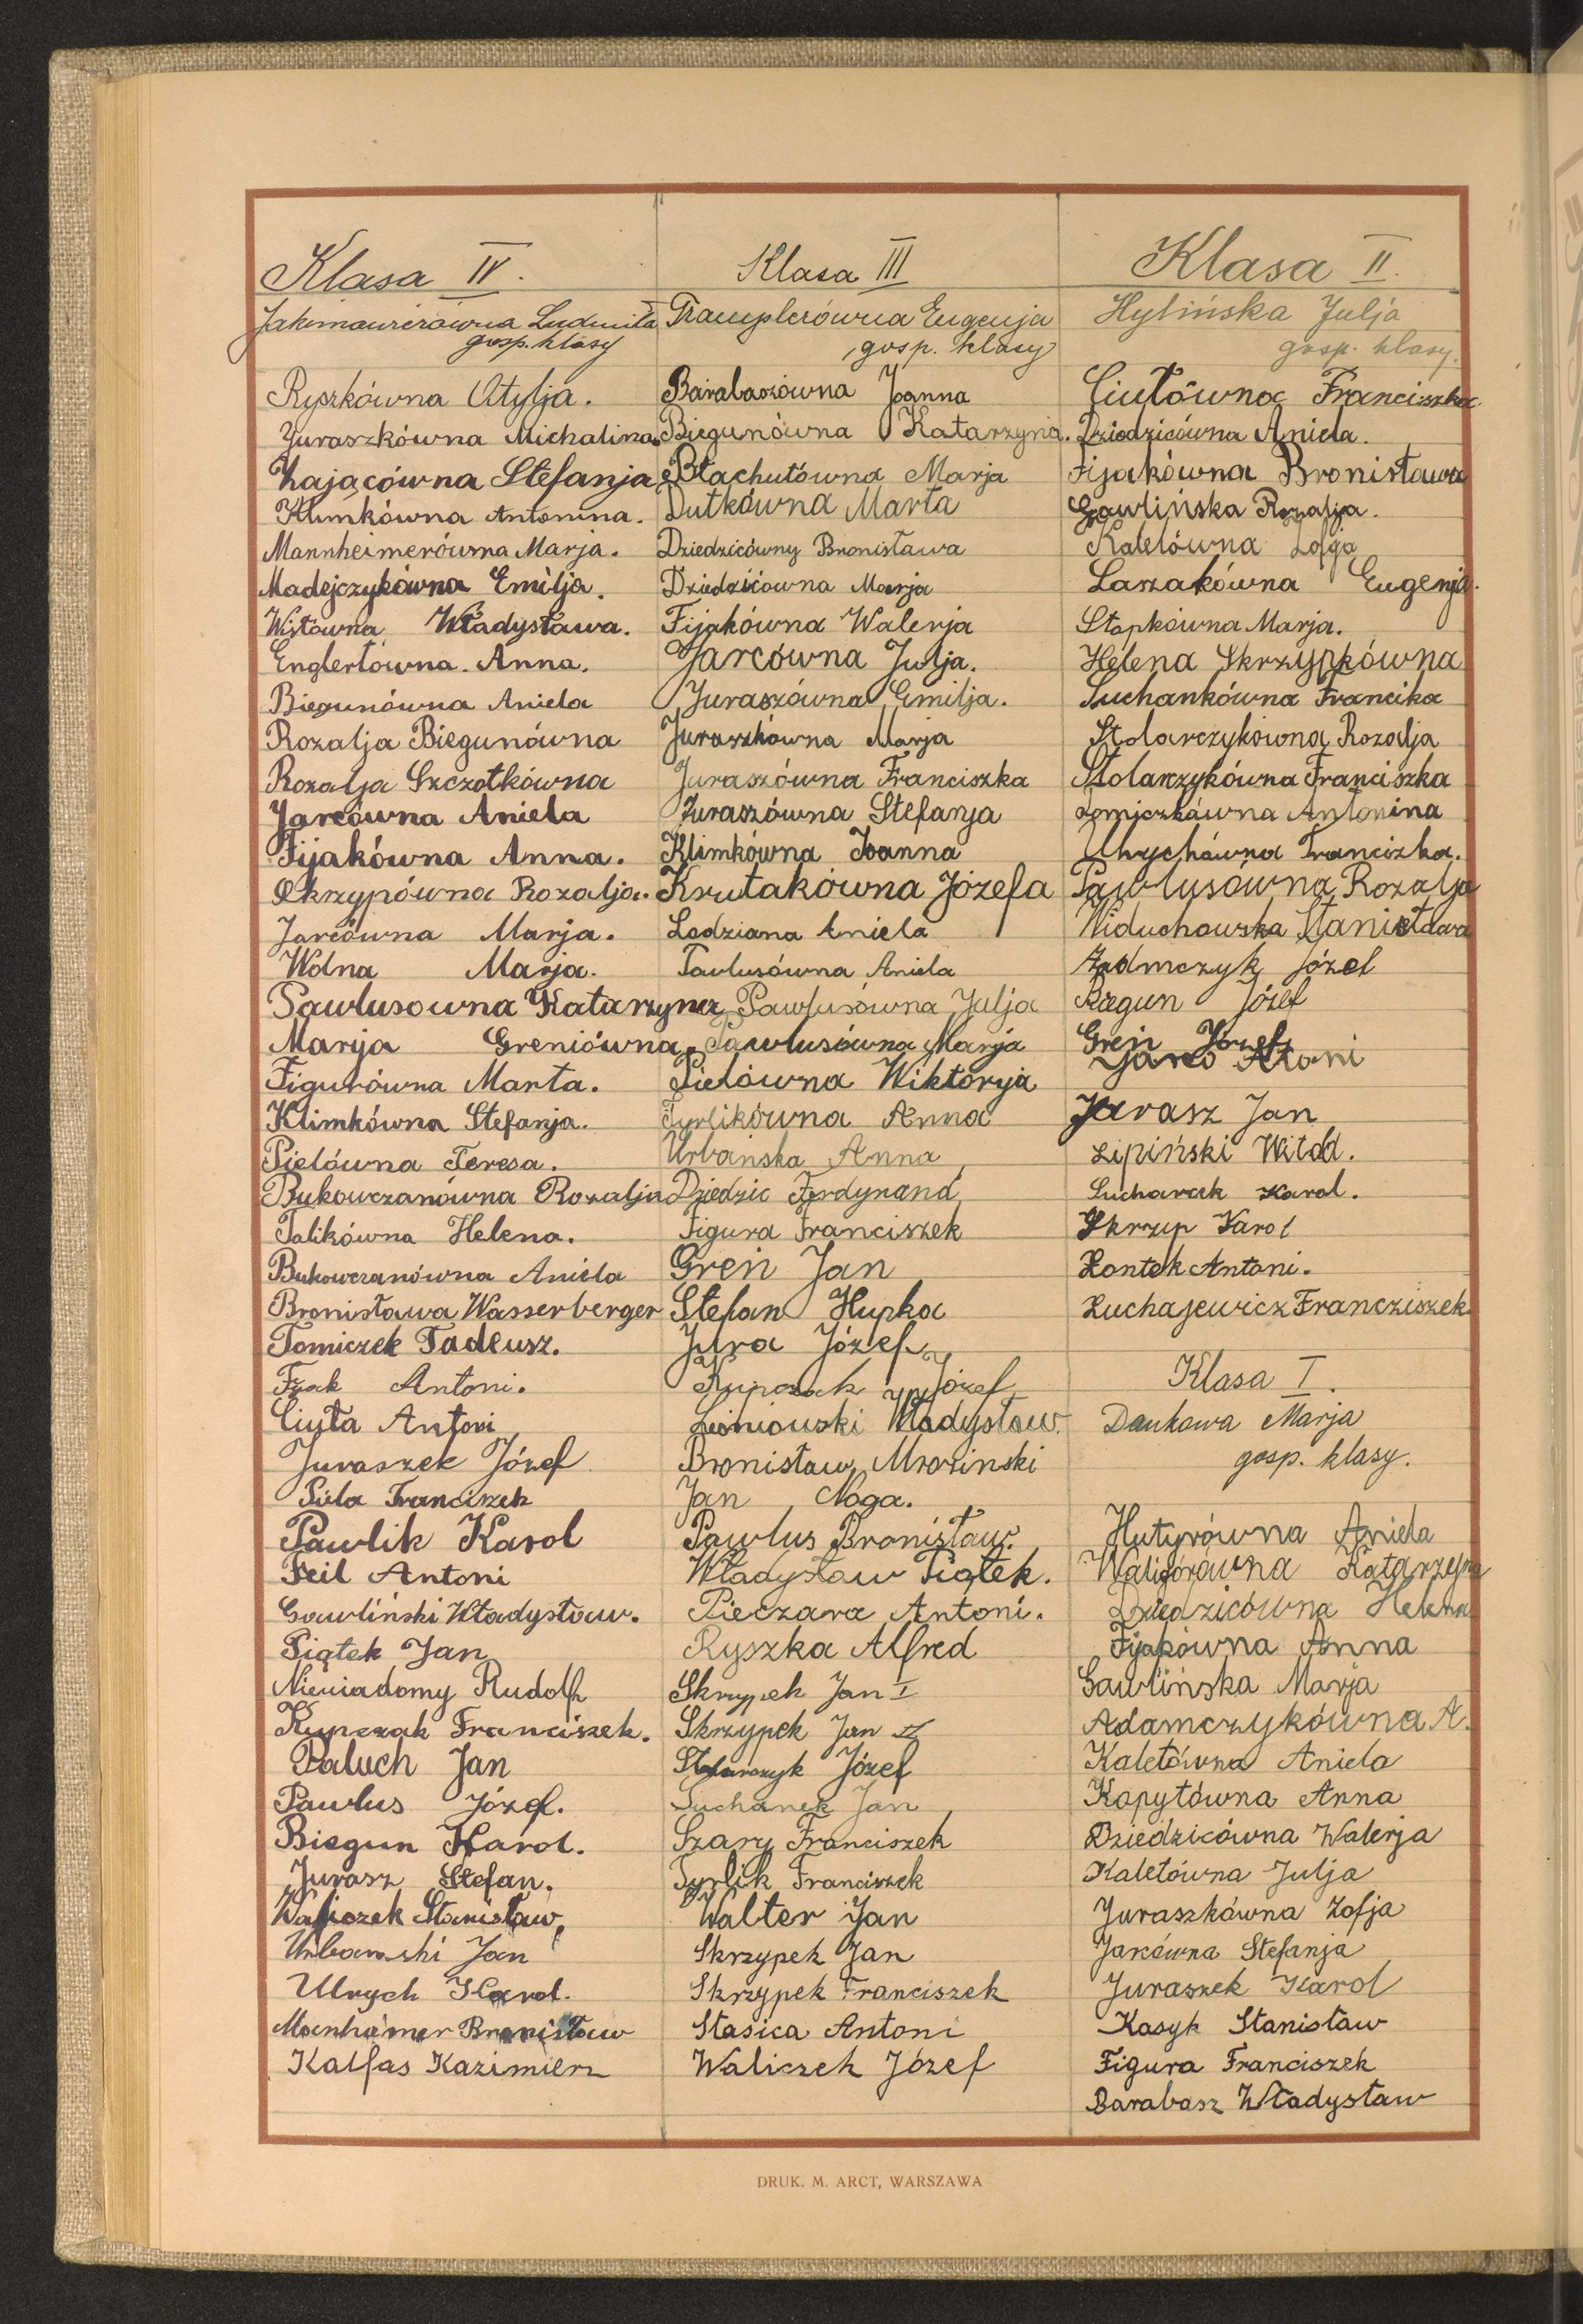 Klasa IV.
Jakimowiczówna Ludmiła
gosp. klasy
Ryszkówna Otylja.
Juraszkówna Michalina.
Zającówna Stefanja
Klimkówna Antonina.
Mannheimerówna Marja.
Madejczykówna Emilja.
Wistówna Władysława.
Englertówna. Anna.
Biegunówna Aniela
Rozalja Biegunówna
Rozalja Szczotkówna
Jarcówna Aniela
Fijakówna Anna.
Skrzypówna Rozalja.
Jarcówna Marja.
Wolna Marja.
Pawlusowna Katarzyna
Marija Greniówna.
Figurówna Marta.
Klimkówna Stefanja.
Pielówna Teresa.
Bukowczanówna Rozalja
Talikówna Helena.
Bukowczanówna Aniela
Bronisława Wasserberger
Tomiczek Tadeusz.
Antoni.
Ciuta Antoni
Juraszek Józef
Piela Franciszek
Pawlik Karol
Feil Antoni
Gawliński Władysław.
Piątek Jan
Niewiadomy Rudolf
Kupczak Franciszek.
Paluch Jan
Pawlus Józef.
Biegun Karol.
Jurasz Stefan.
Waliczek Stanisław,
Urbański Jan
Ulrych Karol.
Manhamer Bronisław
Kalfas Kazimierz
Klasa III
Tramplerówna Eugenja
gosp. klasy
Barabaszówna Joanna
Biegunówna Katarzyna.
Błachutówna Marja
Dutkówna Marta
Dziedzicówny Bronisława
Dziedzicówna Marja
Fijakówna Walerja
Jarcówna Julja.
Juraszówna Emilja.
Juraszkówna Marja
Juraszówna Franciszka
Juraszówna Stefanja
Klimkówna Joanna
Krutakówna Józefa
Lodziana Aniela
Pawlusówna Aniela
Pawlusówna Julja
Pawlusówna Marja
Pielówna Wiktorya
Tyrlikówna Anna
Urbańska Anna
Dziedzic Ferdynand
Figura Franciszek
Greń Jan
Stefan Hupka
Jura Józef
Kupczak Józef
Leśniowski Władysław.
Bronisław Mroziński
Jan Noga.
Pawlus Bronisław.
Władysław Piątek.
Pieczara Antoni.
Ryszka Alfred
Skrzypek Jan I
Skrzypek Jan II
Stolarczyk Józef
Suchanek Jan
Szary Franciszek
Tyrlik Franciszek
Walter Jan
Skrzypek Jan
Skrzypek Franciszek
Stasica Antoni
Waliczek Józef
Klasa II.
Hylińska Julja
gosp. klasy.
Ciutówna Franciszka.
Dziedzicówna Aniela.
Fijakówna Bronisława
Gawlińska Rozalja.
Kaletówna Zofja
Laszakówna Eugenja.
Słopkówna Marja.
Helena Skrzypkówna
Suchankówna Francika
Stolarczykówna Rozalja
Stolarzykówna Franciszka
Tomiczkówna Antonina
Ulrychówna Franciszka.
Pawlusówna Rozalja
Widuchowska Stanisława
Józef
Biegun Józef
Greń Józef
Jarco
Jurasz Jan
Lipiński Witold.
Sucharek Karol.
Skrzyp Karol
Zontek Antoni.
Łuchajewicz Francziszek
Klasa I.
Dankowa Marja
gosp. klasy.
Hutyrówna Aniela
Waligórówna Katarzyna
Dziedzicówna Helena
Fijakówna Anna
Gawlińska Marja
Adamczykówna A.
Kaletówna Aniela
Kopytówna Anna
Dziedzicówna Walerja
Kaletówna Julja
Juraszkówna Zofja
Jarcówna Stefanja
Juraszek Karol
Kasyk Stanisław
Figura Franciszek
Barabasz Władysław
DRUK. M. ARCT, WARSZAWA